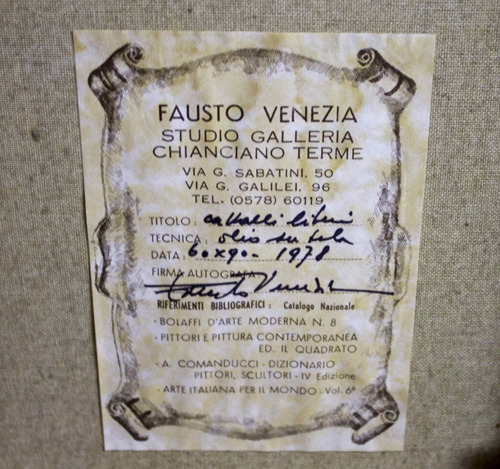 FAUSTO VENEZIA
STUDIO GALLERIA
CHIANCIANO TERME
VIA G. SABATINI, 50
VIA G. GALILEI, 96
TEL. (0578) 60119
TITOLO: cavalli liberi
TECNICA: olio su tela
DATA: 60x90 - 1978
FIRMA AUTOGRAFA
Fausto Venezia
RIFERIMENTI BIBLIOGRAFICI: Catalogo Nazionale
- BOLAFFI D'ARTE MODERNA N. 8
- PITTORI E PITTURA CONTEMPORANEA
ED. IL QUADRATO
- A. COMANDUCCI - DIZIONARIO
PITTORI, SCULTORI - IV Edizione
- ARTE ITALIANA PER IL MONDO - Vol. 6º